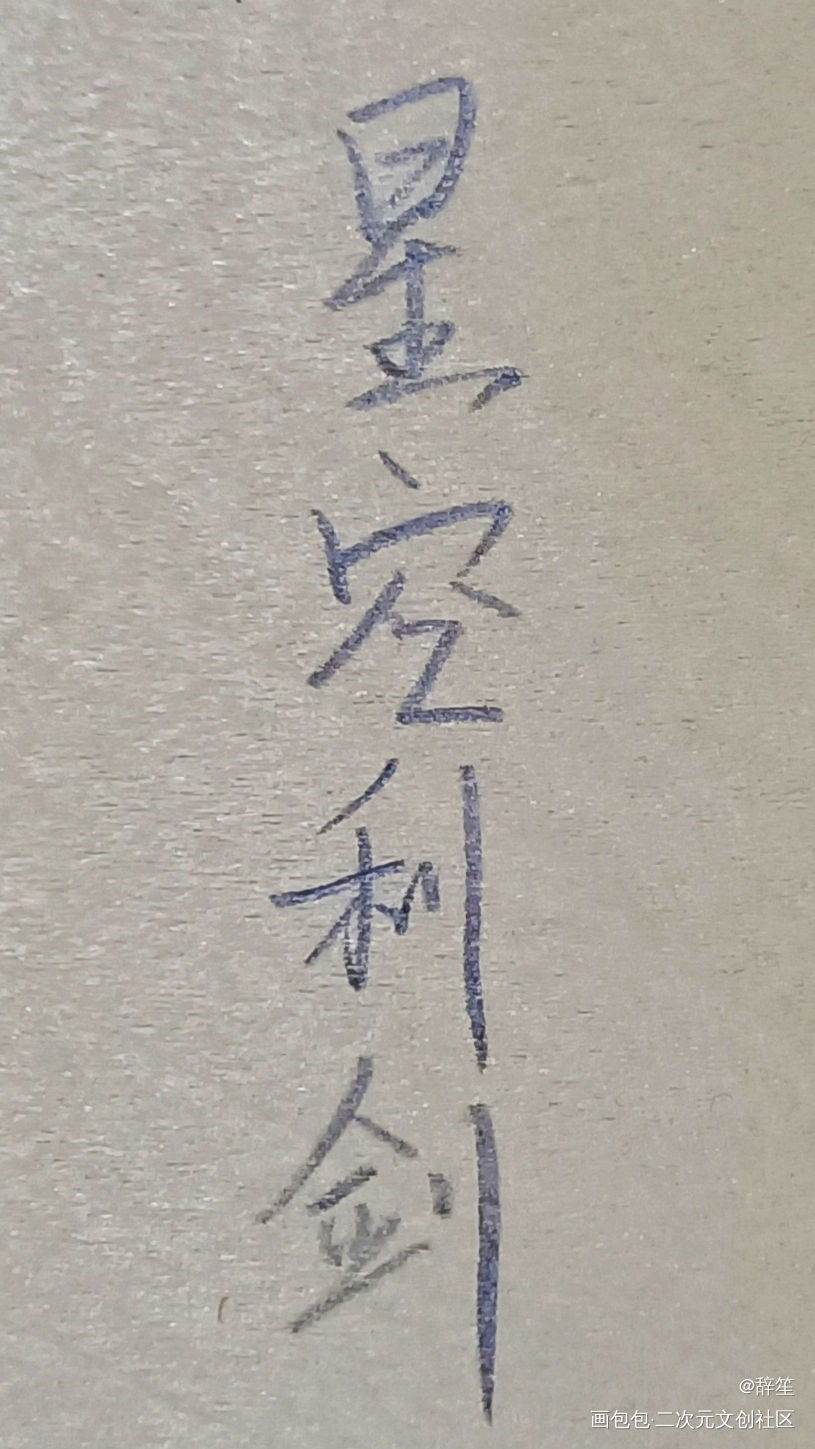 星空利剑
@辞笙
画包包·二次元文创社区